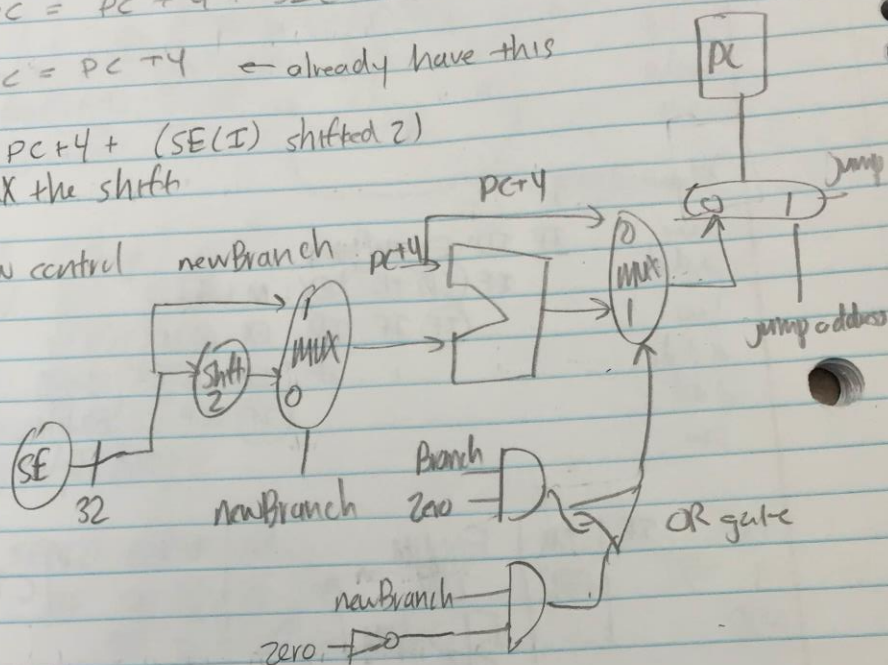 C = PC + 4
C = PC + 4 ← already have this
PC+4 + (SE(I) shifted 2)
X the shift
control newBranch
PC+4
PC+4
PC
0 1 jump
jump address
0
mux
1
1
mux
0
Shift
2
SE
32
newBranch
Branch
Zero
OR gate
newBranch
zero